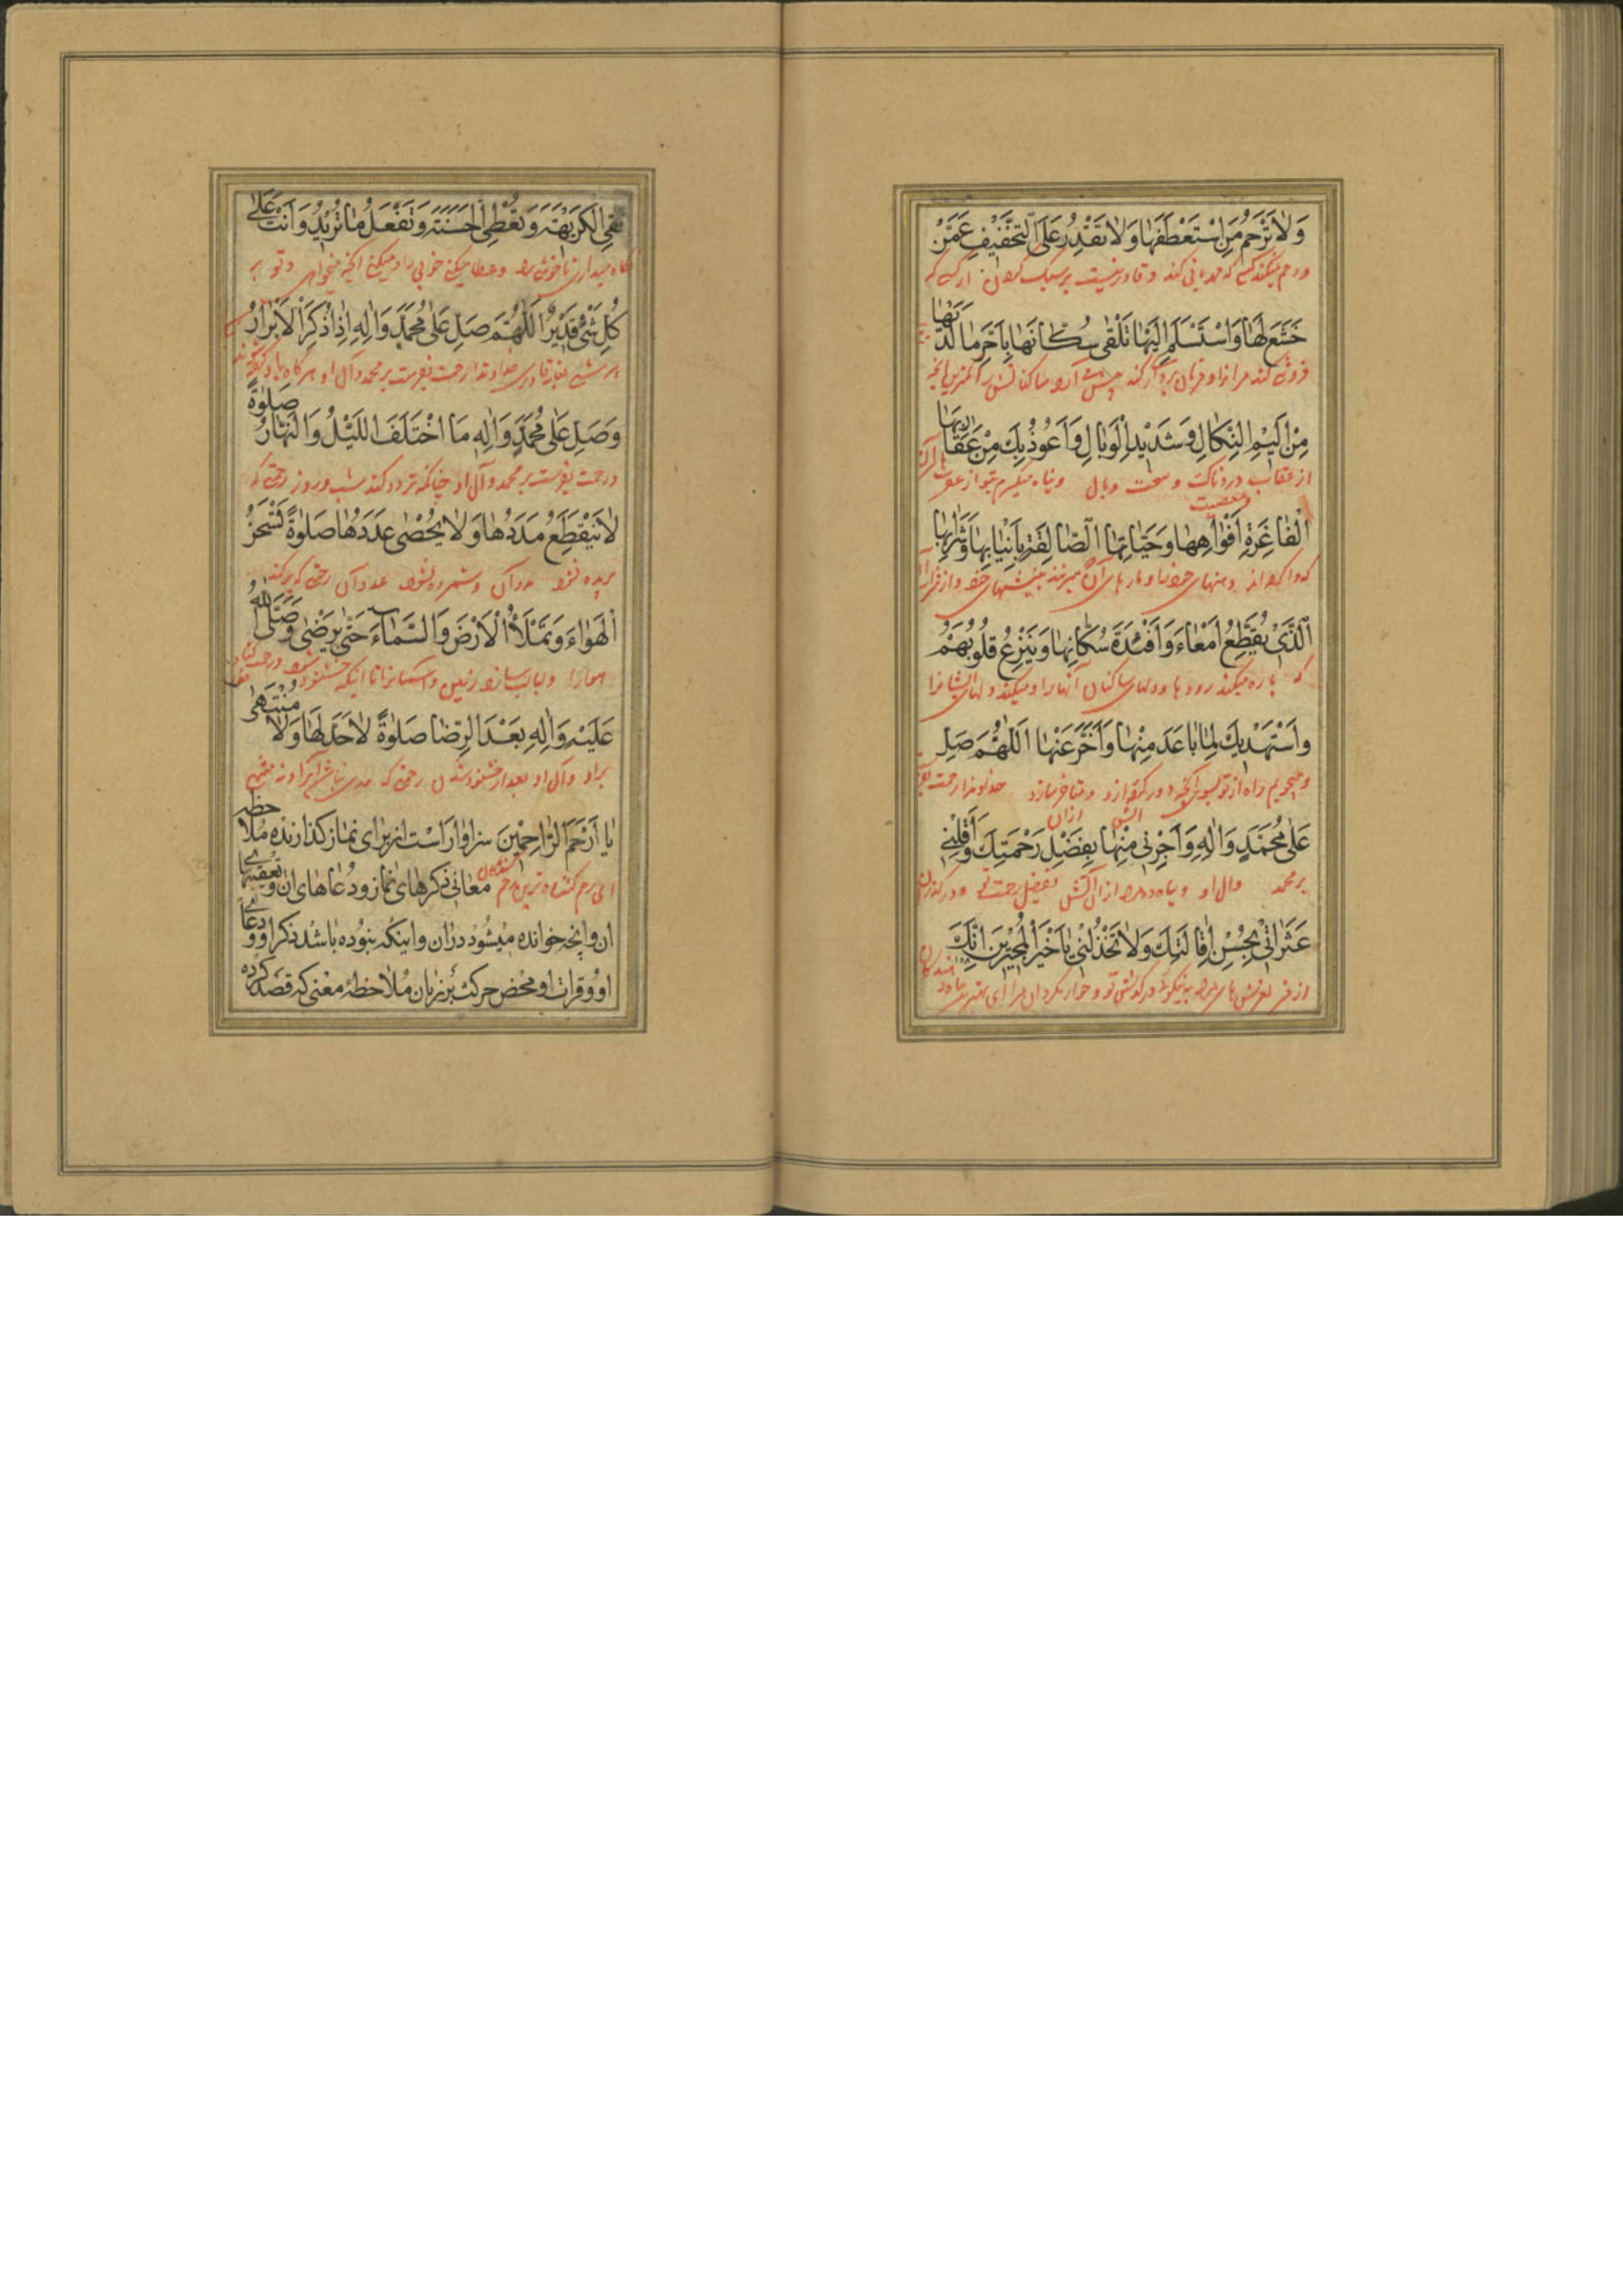 وَلَا تَرْحَمُ مَنِ اسْتَعْطَفَهَا وَلَا تَقْدِرُ عَلَى التَّخْفِيفِ عَمَّنْ
ورحم نمیکند کسی که مهربانی کند و قادر نیست بر سبک کردن از کسی که
خَشَعَ لَهَا وَاسْتَسْلَمَ إِلَيْهَا تَلْقَى سُكَّانَهَا بِأَحَرِّ مَا لَدَيْهَا
فروتنی کند مر آنرا و فرمان برداری کند
مِنْ أَلِيمِ النَّكَالِ وَشَدِيدِ الْوَبَالِ وَأَعُوذُ بِكَ مِنْ عَقَارِبِهَا
از عقاب دردناک و سخت وبال و پناه میگیرم بتو از عقربهای آن
الْفَاغِرَةِ أَفْوَاهُهَا وَحَيَّاتِهَا الصَّالِقَةِ بِأَنْيَابِهَا وَشَرَابِهَا
که وا کرده اند دهنهای خود را و مارهای آن که میزنند به نیشهای خود و از شراب آن
الَّذِي يُقَطِّعُ أَمْعَاءَ وَأَفْئِدَةَ سُكَّانِهَا وَيَنْزِعُ قُلُوبَهُمْ
که پاره میکند رودها و دلهای ساکنان آنها را و میکند دلهای ایشانرا
وَأَسْتَهْدِيكَ لِمَا بَاعَدَ مِنْهَا وَأَخَّرَ عَنْهَا اللَّهُمَّ صَلِّ
و میجویم راه از تو بسوی آنچه دور کند از آن و متاخر سازد از آن خداوندا رحمت
عَلَى مُحَمَّدٍ وَآلِهِ وَأَجِرْنِي مِنْهَا بِفَضْلِ رَحْمَتِكَ وَأَقِلْنِي
بر محمد وال او و پناه ده مرا از آن آتش بفضل رحمت خود و در گذر
عَثَرَاتِي بِحُسْنِ إِقَالَتِكَ وَلَا تَخْذُلْنِي يَا خَيْرَ الْمُجِيرِينَ إِنَّكَ
از لغزش های مرا به نیکوئی درگذشتن تو و خوار مگردان مرا ای بهترین پناه دهندگان
تَقِي الْكَرِيهَةَ وَتُعْطِي الْحَسَنَةَ وَتَفْعَلُ مَا تُرِيدُ وَأَنْتَ عَلَى
نگاه میداری از ناخوشی ها و عطا میکنی خوبی را و میکنی آنچه میخواهی و تو بر
كُلِّ شَيْءٍ قَدِيرٌ اللَّهُمَّ صَلِّ عَلَى مُحَمَّدٍ وَآلِهِ إِذَا ذُكِرَ الْأَبْرَارُ
خداوندا رحمت بفرست بر محمد وآل او هر گاه یاد کرده شوند
وَصَلِّ عَلَى مُحَمَّدٍ وَآلِهِ مَا اخْتَلَفَ اللَّيْلُ وَالنَّهَارُ صَلَوٰةً
ورحمت بفرست بر محمد وآل او چنانکه تردد کند شب و روز رحمتی که
لَا يَنْقَطِعُ مَدَدُهَا وَلَا يُحْصَى عَدَدُهَا صَلَوٰةً تَشْحَنُ
بریده نشود مدد آن و شمرده نشود عدد آن رحمتی که پر کند
الْهَوَاءَ وَتَمْلَأُ الْأَرْضَ وَالسَّمَاءَ حَتَّى يَرْضَى وَصَلَّى اللَّهُ
هوا را و لبالب سازد زمین و آسمانرا تا اینکه خشنود شود و رحمت کناد
عَلَيْهِ وَآلِهِ بَعْدَ الرِّضَا صَلَوٰةً لَا حَدَّ لَهَا وَلَا مُنْتَهَى
بر او وآل او بعد از خشنود شدن رحمتی که حدی نباشد آنرا و نه منتهی
يَا أَرْحَمَ الرَّاحِمِينَ سزاوار است از برای نماز کذارنده ملاحظه
ای رحم کننده ترین رحم کنندگان معانی ذکرهای نماز و دعاهای ان و تعقیبهای
ان و آنچه خوانده میشود در ان و اینکه نبوده باشد ذکر او و دعای
او و قرات او محض حرکت بر زبان ملاحظه معنی که قصد کرده